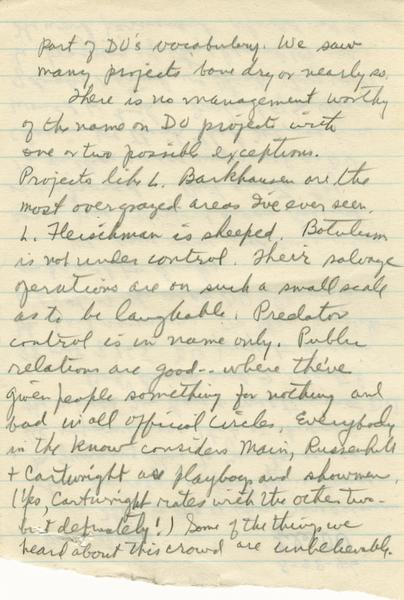 part of DU's vocabulary. We saw
many projects bone dry or nearly so.
There is no management worthy
of the name on DU projects with
one or two possible exceptions.
Projects like L. Barkhausen are the
most overgrazed areas I've ever seen.
L. Fleischman is sheeped. Botulism
is not under control. Their salvage
operations are on such a small scale
as to be laughable. Predator
control is in name only. Public
relations are good -- where they've
given people something for nothing and
bad in all official circles. Everybody
in the know considers Main, Russenholt
+ Cartwright as playboys and showmen.
(Yes, Cartwright rates with the other two--
but definately!) Some of the things we
heard about this crowd are unbelievable.